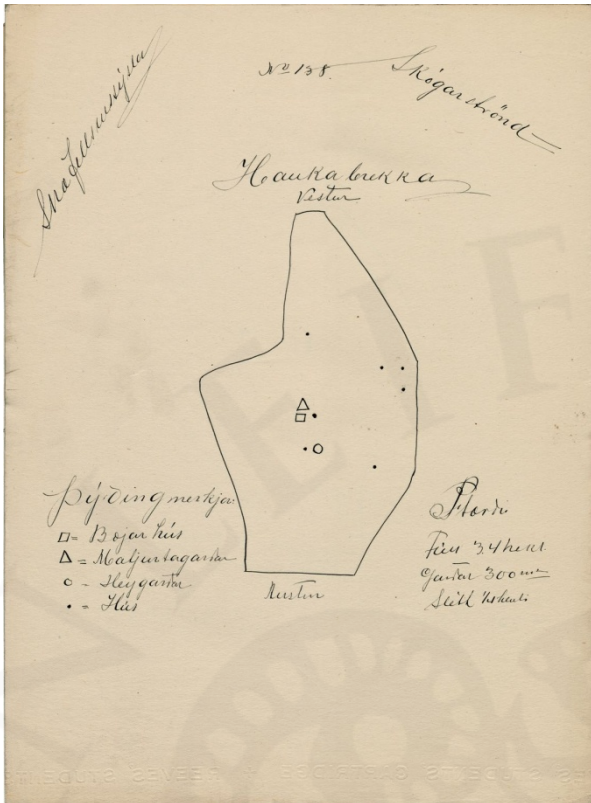 Snæfellsnessýsla
No 138.
Skógarströnd
Haukabrekka
Vestur
Þýðing merkja:
□ = Bæjarhús
△ = Matjurtagarðar
○ = Heygarðar
• = Hús
Austur
Stærð:
Tún 3.4 hekt
Garðar 300 m²
Slétt